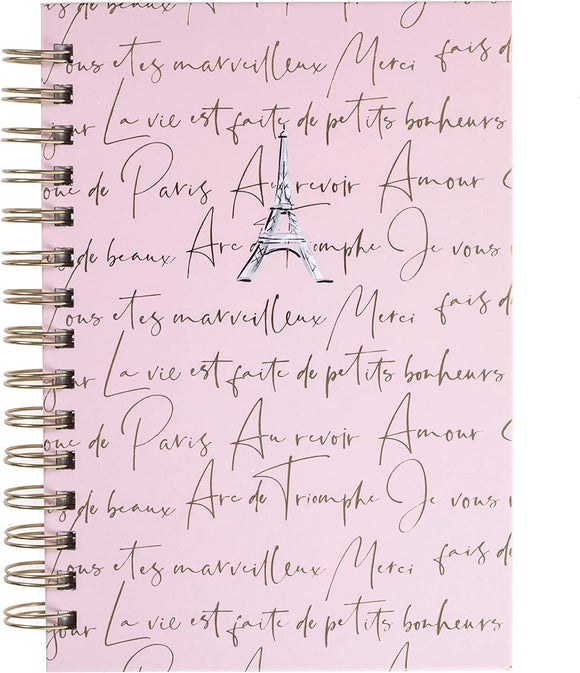 de beaux Arc de Triomphe Je vous
Vous etes marveilleux Merci fais d
jour La vie est faite de petits bonheurs
que de Paris Au revoir Amour
is de beaux Arc de Triomphe Je vous
Vous etes marveilleux Merci fais d
jour La vie est faite de petits bonheurs
que de Paris Au revoir Amour
is de beaux Arc de Triomphe Je vous
Vous etes marveilleux Merci fais de
jour La vie est faite de petits bonheurs